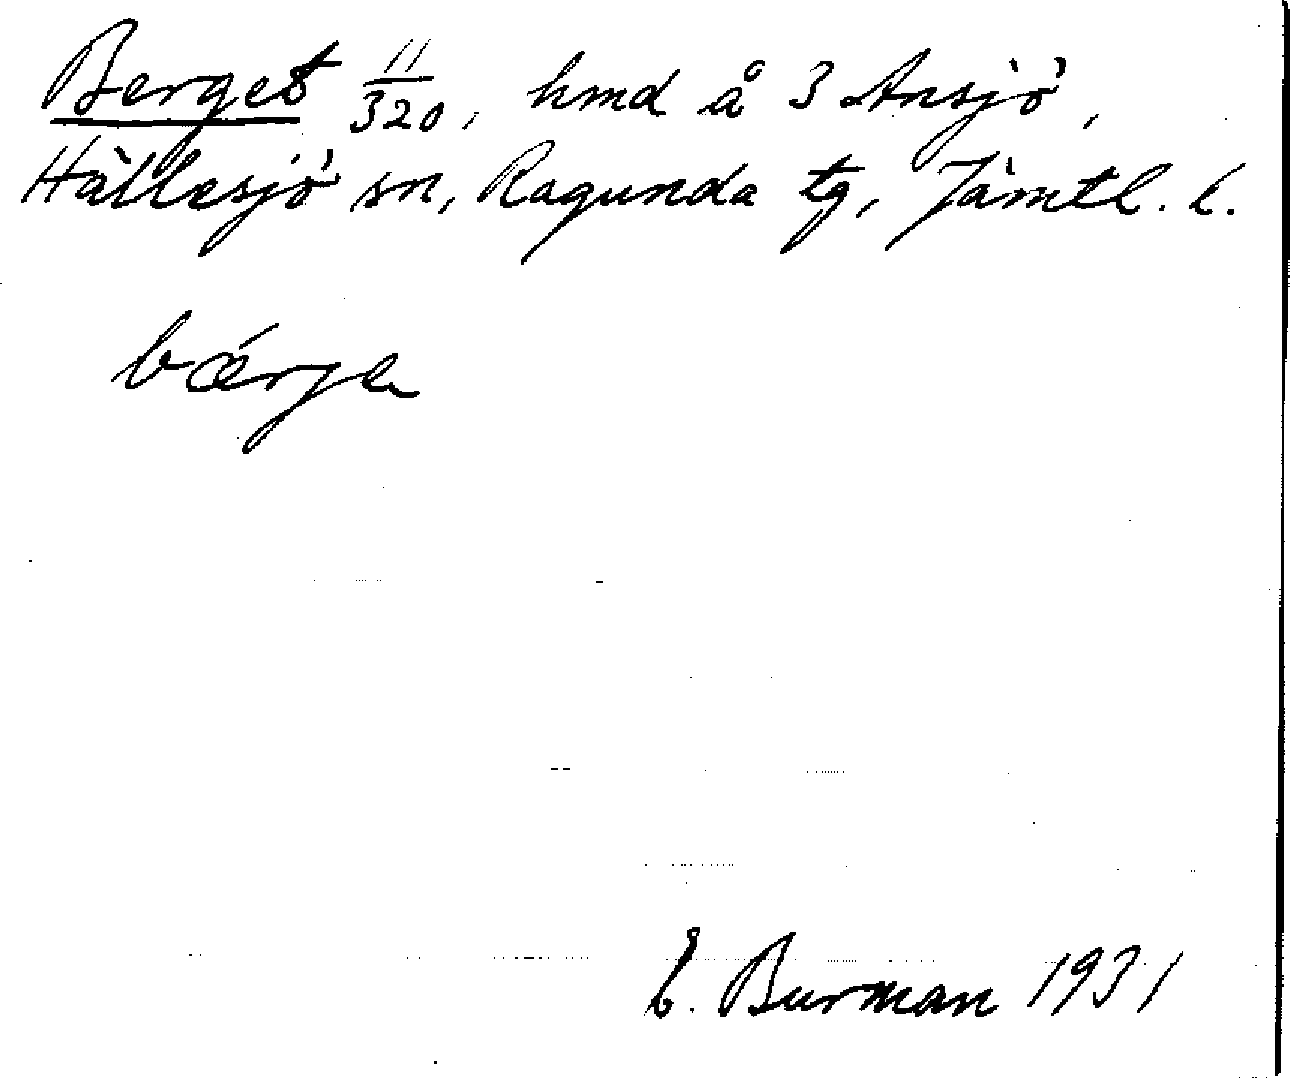 Berget 11/320, hmd å 3 Ansjö,
Hällesjö sn, Ragunda tg, Jämtl. l.
bǽrjɐ
E. Burman 1931